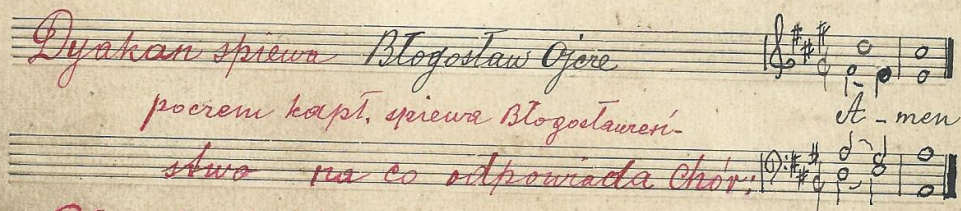 Dyakan spiewa Błogosław Ojcze
poczem kapł. spiewa Błogosławień-
A - men
stwo na co odpowiada Chór: